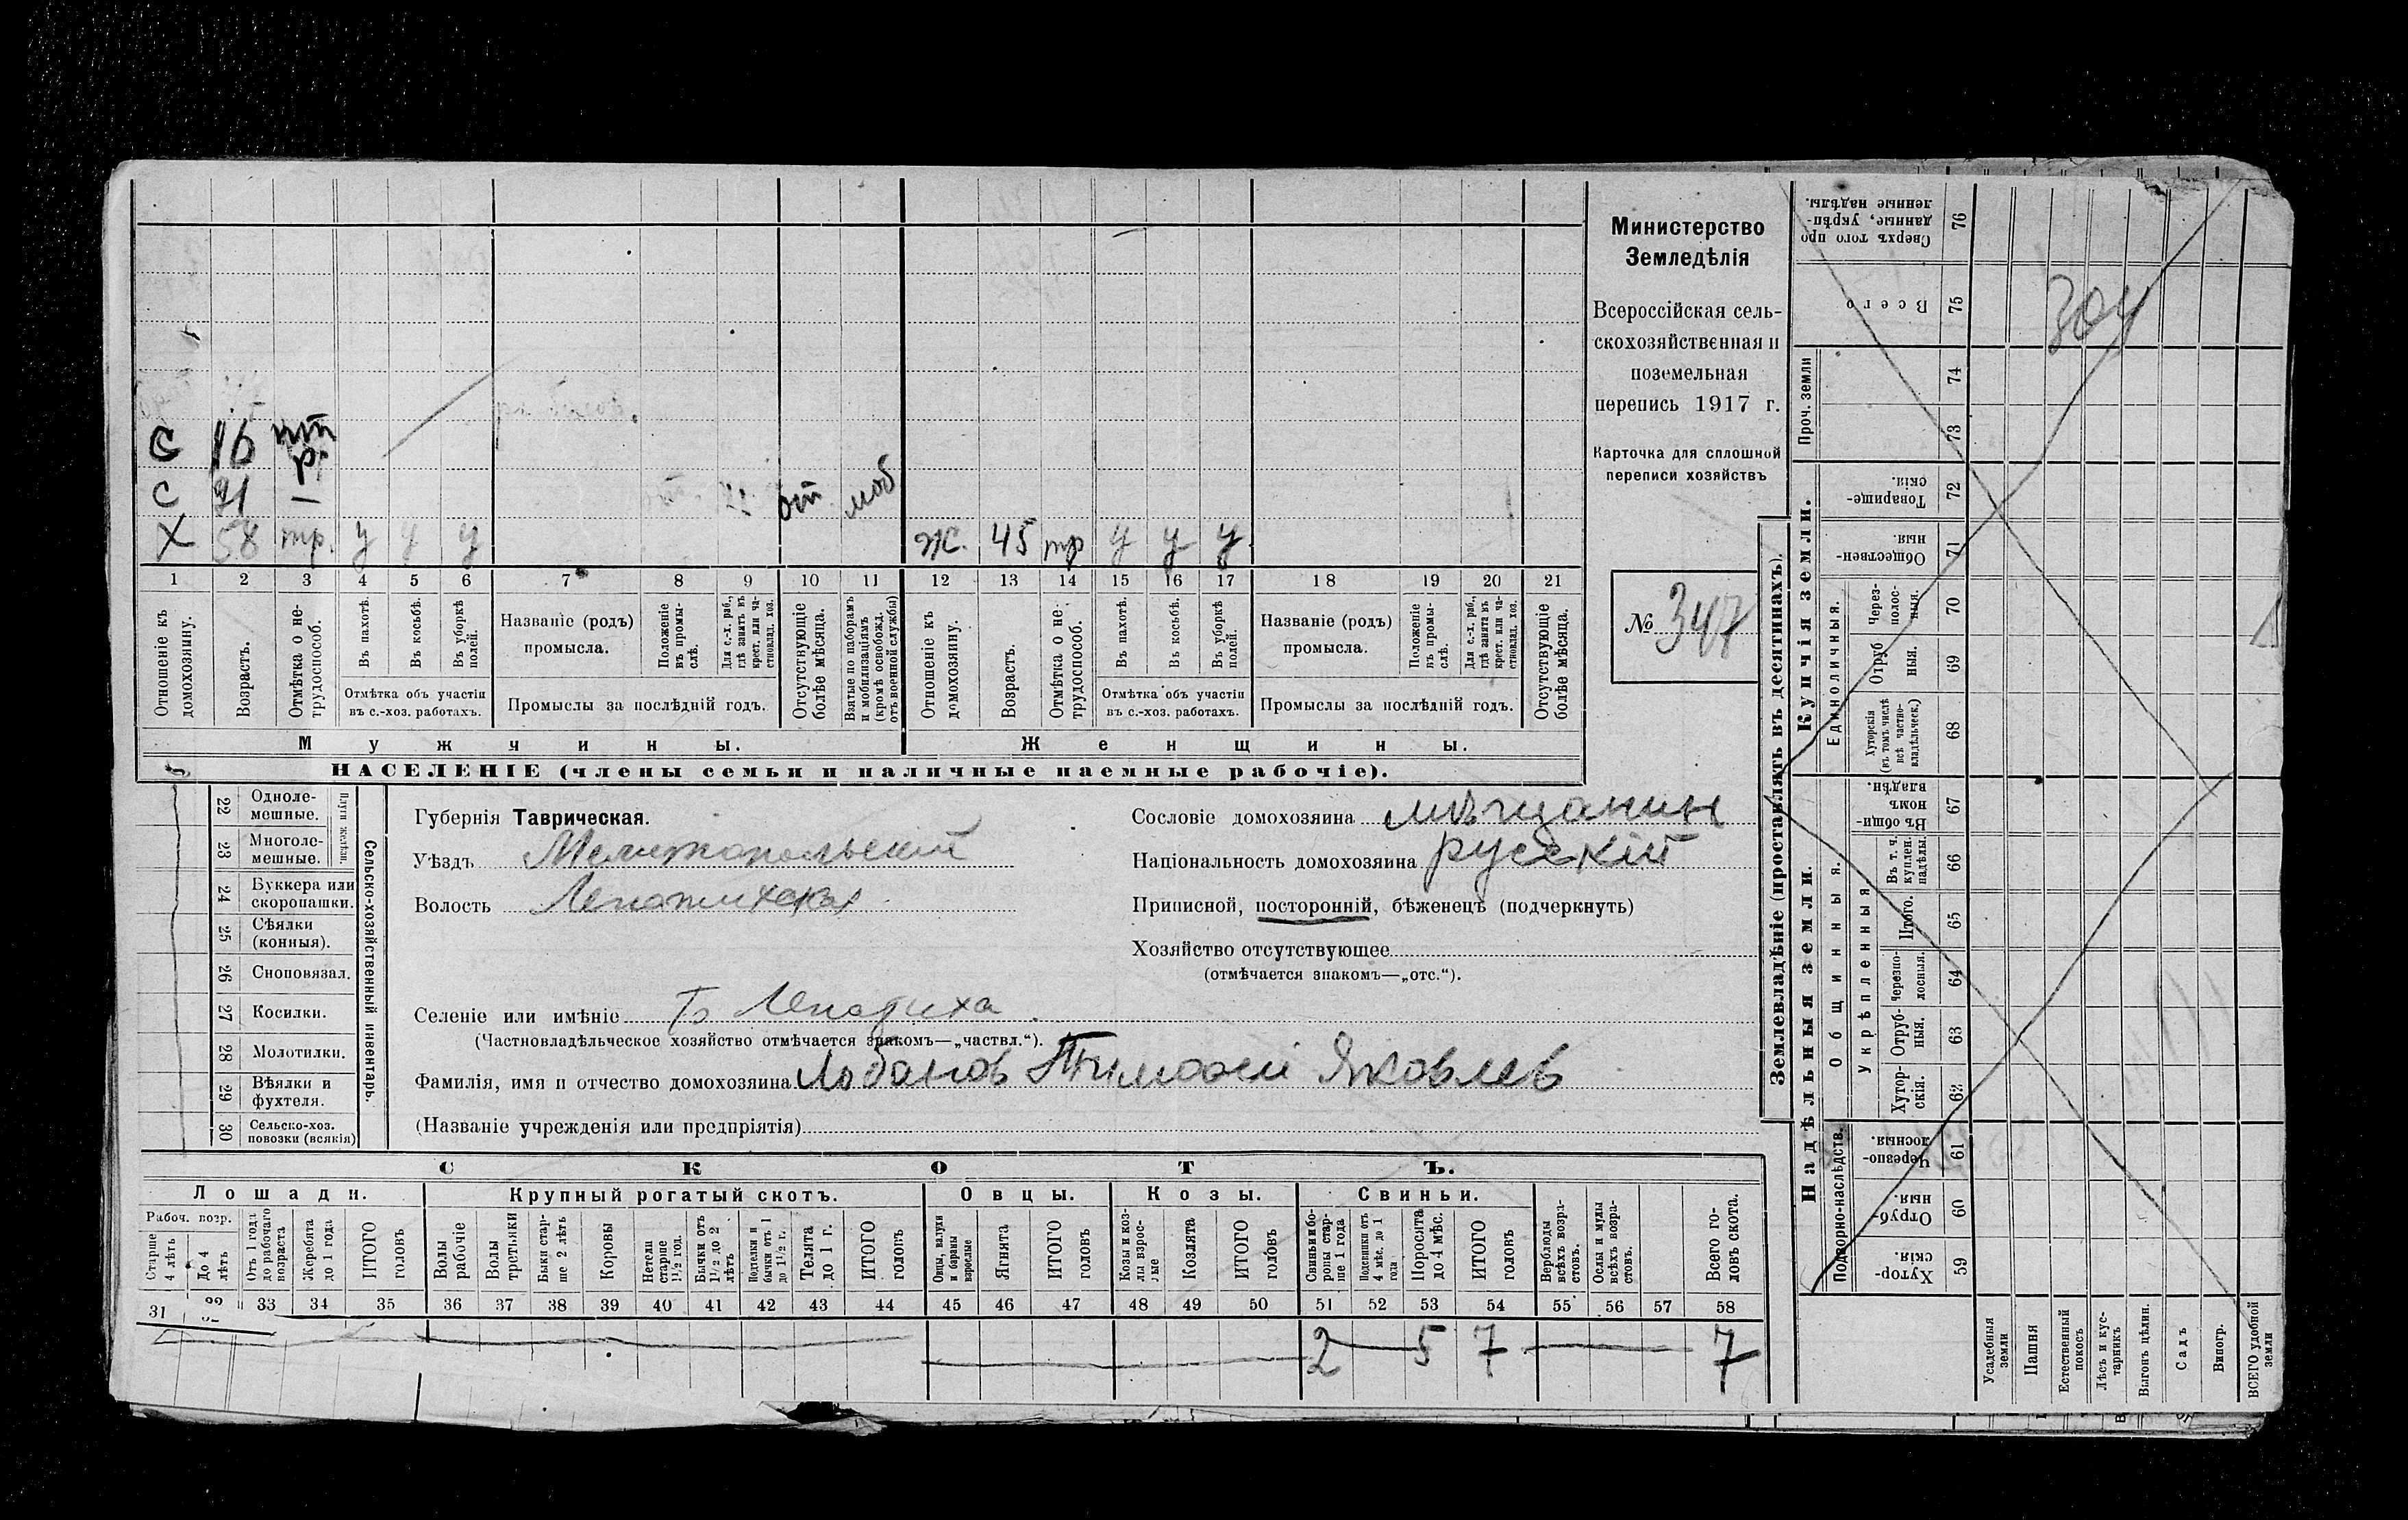 Министерство
Земледѣлія
Всероссійская сель-
скохозяйственная и
поземельная
перепись 1917 г.
Карточка для сплошной
переписи хозяйствъ
№ 347
С 16
С 21 — от моб
Х 58 тр. у у у ж. 45 тр у у у
1 2 3 4 5 6 7 8 9 10 11 12 13 14 15 16 17 18 19 20 21
Отношеніе къ домохозяину.
Возрастъ.
Отмѣтка о не-трудоспособ.
Въ пахотѣ.
Въ косьбѣ.
Въ уборкѣ полей.
Отмѣтка объ участіи
въ с.-хоз. работахъ.
Названіе (родъ)
промысла.
Положеніе въ промы-слѣ.
Для с.-х. раб., гдѣ занятъ въ крест. или ча-стновлад. хоз.
Промыслы за послѣдній годъ.
Отсутствующіе болѣе мѣсяца.
Взятые по наборамъ и мобилизаціямъ (кромѣ освобожд. отъ военной службы)
Отношеніе къ домохозяину.
Возрастъ.
Отмѣтка о не трудоспособ.
Въ пахотѣ.
Въ косьбѣ.
Въ уборкѣ полей.
Отмѣтка объ участіи
въ с.-хоз. работахъ.
Названіе (родъ)
промысла.
Положеніе въ промы-слѣ.
Для с.-х. раб., гдѣ занята въ крест. или ча-стновлад. хоз.
Промыслы за послѣдній годъ.
Отсутствующіе болѣе мѣсяца.
Мужчины. Женщины.
НАСЕЛЕНІЕ (члены семьи и наличные наемные рабочіе).
22 Одноле-мешные.
23 Многоле-мешные.
Плуги желѣзн.
24 Буккера или скоропашки.
25 Сѣялки (конныя).
26 Сноповязал.
27 Косилки.
28 Молотилки.
29 Вѣялки и фухтеля.
30 Сельско-хоз. повозки (всякія)
Сельско-хозяйственный инвентарь.
Губернія Таврическая.
Уѣздъ Мелитопольскій
Волость Лепатихская
Сословіе домохозяина мѣщанин
Національность домохозяина русскій
Приписной, посторонній, бѣженецъ (подчеркнуть)
Хозяйство отсутствующее
(отмѣчается знакомъ—„отс.“).
Селеніе или имѣніе Б Лепатиха
(Частновладѣльческое хозяйство отмѣчается знакомъ—„частвл.“).
Фамилія, имя и отчество домохозяина Лобанов Тимофей Яковлев
(Названіе учрежденія или предпріятія)
СКОТЪ.
Лошади. Крупный рогатый скотъ. Овцы. Козы. Свиньи.
Рабоч. возр.
Старше 4 лѣтъ
До 4 лѣтъ
Отъ 1 года до рабочаго возраста
Жеребята до 1 года
ИТОГО головъ
Волы рабочіе
Волы третьяки
Быки стар-ше 2 лѣтъ
Коровы
Нетели старше 1½ год.
Бычки отъ 1½ до 2 лѣтъ
Подтелки и бычки отъ 1 до 1½ г.
Телята до 1 г.
ИТОГО головъ
Овцы, валухи и бараны взрослые
Ягнята
ИТОГО головъ
Козы и коз-лы взрос-лые
Козлята
ИТОГО головъ
Свиньи и бо-ровы стар-ше 1 года
Подсвинки отъ 4 мѣс. до 1 года
Поросята до 4 мѣс.
ИТОГО головъ
Верблюды всѣхъ возра-стовъ.
Ослы и мулы всѣхъ возра-стовъ.
Всего го-ловъ скота.
31 32 33 34 35 36 37 38 39 40 41 42 43 44 45 46 47 48 49 50 51 52 53 54 55 56 57 58
2 — 5 7 — 7
Землевладѣніе (проставлять въ десятинахъ).
Надѣльныя земли. Купчія земли. Проч. земли
Подворно-наслѣдств.
Общинныя.
Укрѣпленныя.
Единоличныя.
Хутор-скія. 59
Отруб-ныя. 60
Черезпо-лосныя. 61
Хутор-скія. 62
Отруб-ныя. 63
Черезпо-лосныя. 64
Итого. 65
Въ т. ч. куплен. надѣлы. 66
Въ общи-номъ владѣн. 67
Хуторскія (въ томъ числѣ всѣ частно-владѣльческ.) 68
Отруб ныя. 69
Через-полос-ныя. 70
Обществен-ныя. 71
Товарище-скія. 72
73
74
Всего 75
Сверхъ того про данные, укрѣп-ленные надѣлы. 76
Усадебныя земли
Пашня
Естественный покосъ
Лѣсъ и кус-тарникъ
Выгонъ цѣлин.
Садъ
Виногр.
ВСЕГО удобной земли